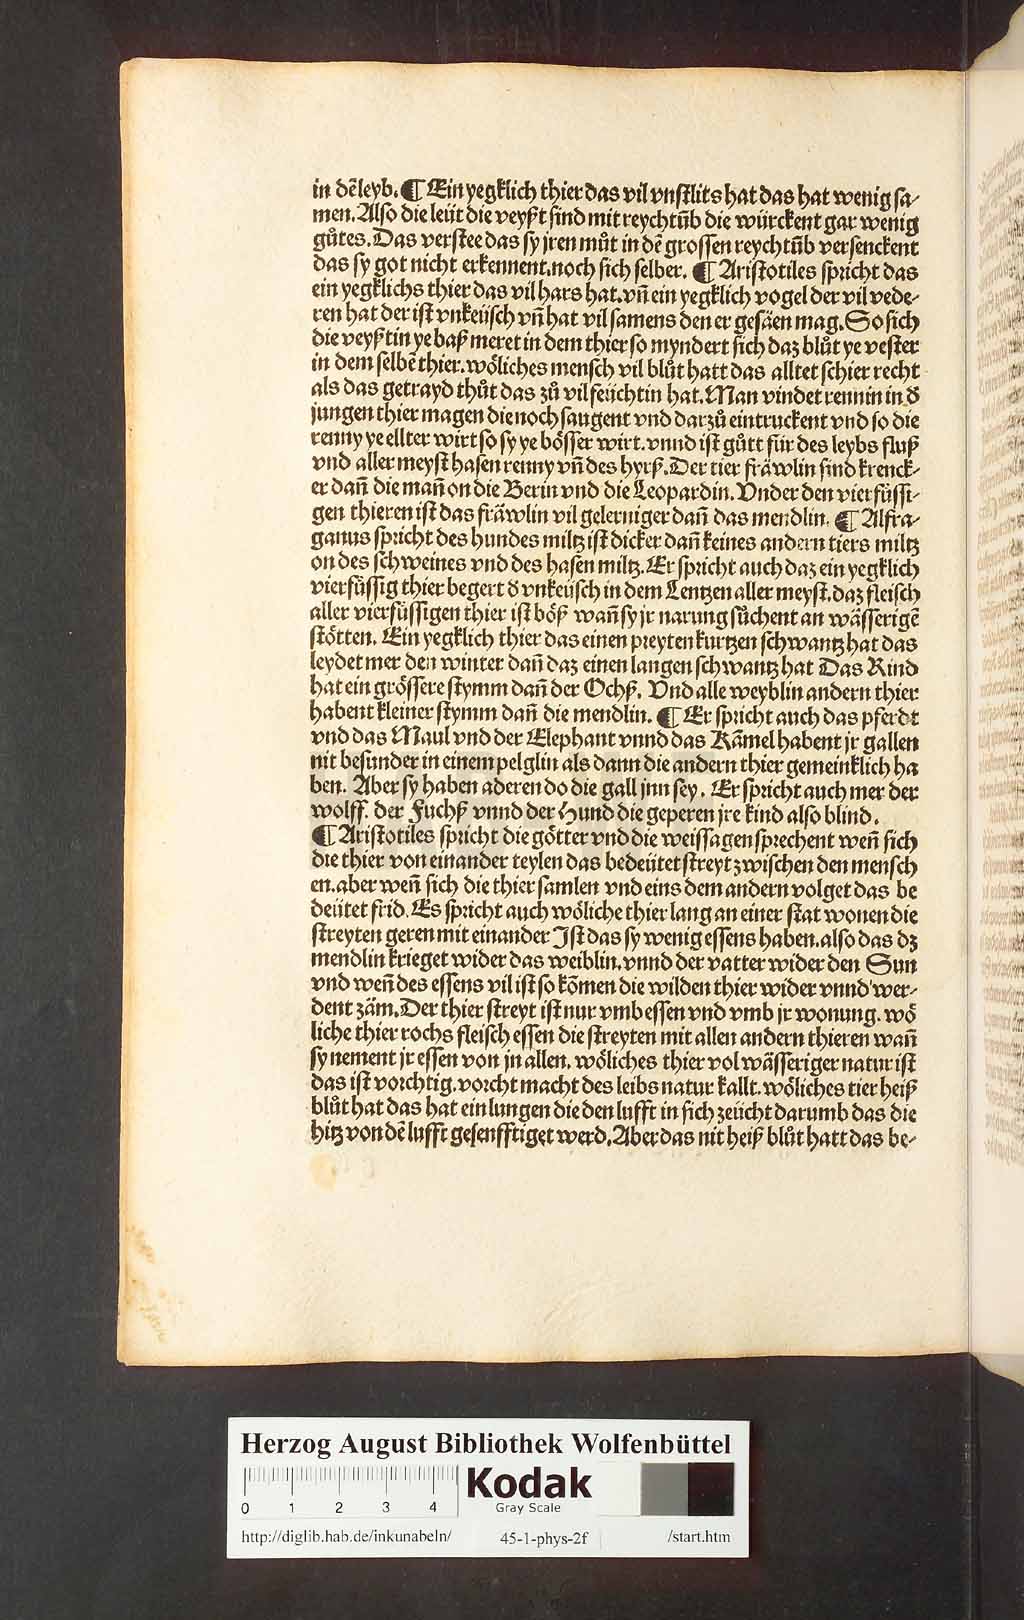 in dẽ leyb. ¶ Ein yegklich thier das vil vnſlits hat das hat wenig ſa⸗
men. Alſo die leüt die veyßt ſind mit reychtůb die würckent gar wenig
gůtes. Das verſtee das ſy jren můt in dẽ groſſen reychtũb verſenckent
das ſy got nicht erkennent. noch ſich ſelber. ¶ Ariſtotiles ſpricht das
ein yegklichs thier das vil hars hat. vñ ein yegklich vogel der vil vede⸗
ren hat der iſt vnkeüſch vñ hat vil ſamens den er geſäen mag. So ſich
die veyßtin ye baß meret in dem thier ſo myndert ſich daz blůt ye veſter
in dem ſelbẽ thier. wöliches menſch vil blůt hatt das alltet ſchier recht
als das getrayd thůt das zů vil feüchtin hat. Man vindet rennin in đ
jungen thier magen die noch ſaugent vnd darzů eintruckent vnd ſo die
renny ye ellter wirt ſo ſy ye böſſer wirt. vnnd iſt gůtt für des leybs fluß
vnd aller meyſt haſen renny vñ des hyrß. Der tier fräwlin ſind krenck⸗
er dañ die mañ on die Berin vnd die Leopardin. Vnder den vier füſſi⸗
gen thieren iſt das fräwlin vil gelerniger dañ das mendlin. ¶ Alfra⸗
ganus ſpricht des hundes miltz iſt dicker dañ keines andern tiers miltz
on des ſchweines vnd des haſen miltz. Er ſpricht auch daz ein yegklich
vierfüſſig thier begert đ vnkeüſch in dem Lentzen aller meyſt. daz fleiſch
aller vierfüſſigen thier iſt böß wañ ſy jr narung ſůchent an wäſſerigẽ
ſtötten. Ein yegklich thier das einen preyten kurtzen ſchwantz hat das
leydet mer den winter dañ daz einen langen ſchwantz hat Das Rind
hat ein gröſſere ſtymm dañ der Ochß. Vnd alle weyblin andern thier
habent kleiner ſtymm dañ die mendlin. ¶ Er ſpricht auch das pferdt
vnd das Maul vnd der Elephant vnnd das Kãmel habent jr gallen
nit beſunder in einem pelglin als dann die andern thier gemeinklich ha
ben. Aber ſy haben aderen do die gall jnn ſey. Er ſpricht auch mer der
wolff. der Fuchß vnnd der Hund die geperen jre kind alſo blind.
¶ Ariſtotiles ſpricht die götter vnd die weiſſagen ſprechent weñ ſich
die thier von einander teylen das bedeütet ſtreyt zwiſchen den menſch
en. aber weñ ſich die thier ſamlen vnd eins dem andern volget das be
deütet frid. Es ſpricht auch wöliche thier lang an einer ſtat wonen die
ſtreyten geren mit einander Iſt das ſy wenig eſſens haben. alſo das dz
mendlin krieget wider das weiblin. vnnd der vatter wider den Sun
vnd weñ des eſſens vil iſt ſo kõmen die wilden thier wider vnnd wer⸗
dent zäm. Der thier ſtreyt iſt nur vmb eſſen vnd vmb jr wonung. wö
liche thier rochs fleiſch eſſen die ſtreyten mit allen andern thieren wañ
ſy nement jr eſſen von jn allen. wöliches thier vol wäſſeriger natur iſt
das iſt vorchtig. vorcht macht des leibs natur kallt. wöliches tier heiß
blůt hat das hat ein lungen die den lufft in ſich zeücht darumb das die
hitz von dẽ lufft geſenfftiget werd. Aber das nit heiß blůt hatt das be⸗
Herzog August Bibliothek Wolfenbüttel
0 1 2 3 4
Kodak
Gray Scale
http://diglib.hab.de/inkunabeln/ 45-1-phys-2f /start.htm